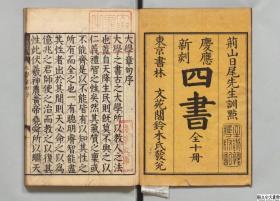 荊山日尾先生訓點
慶應新刻
四書 全十冊
東京書林 文苑閣鈴木氏發兌
大學章句序
大學之書古之大學所以教人之法
也蓋自天降生民則既莫不與之以
仁義禮智之性矣然其氣質之稟或
不能齊是以不能皆有以知其性之
所有而全之也一有聰明睿智能盡
其性者出於其閒則天必命之以為
億兆之君師使之治而教之以復其
性此伏羲神農黃帝堯舜所以繼天